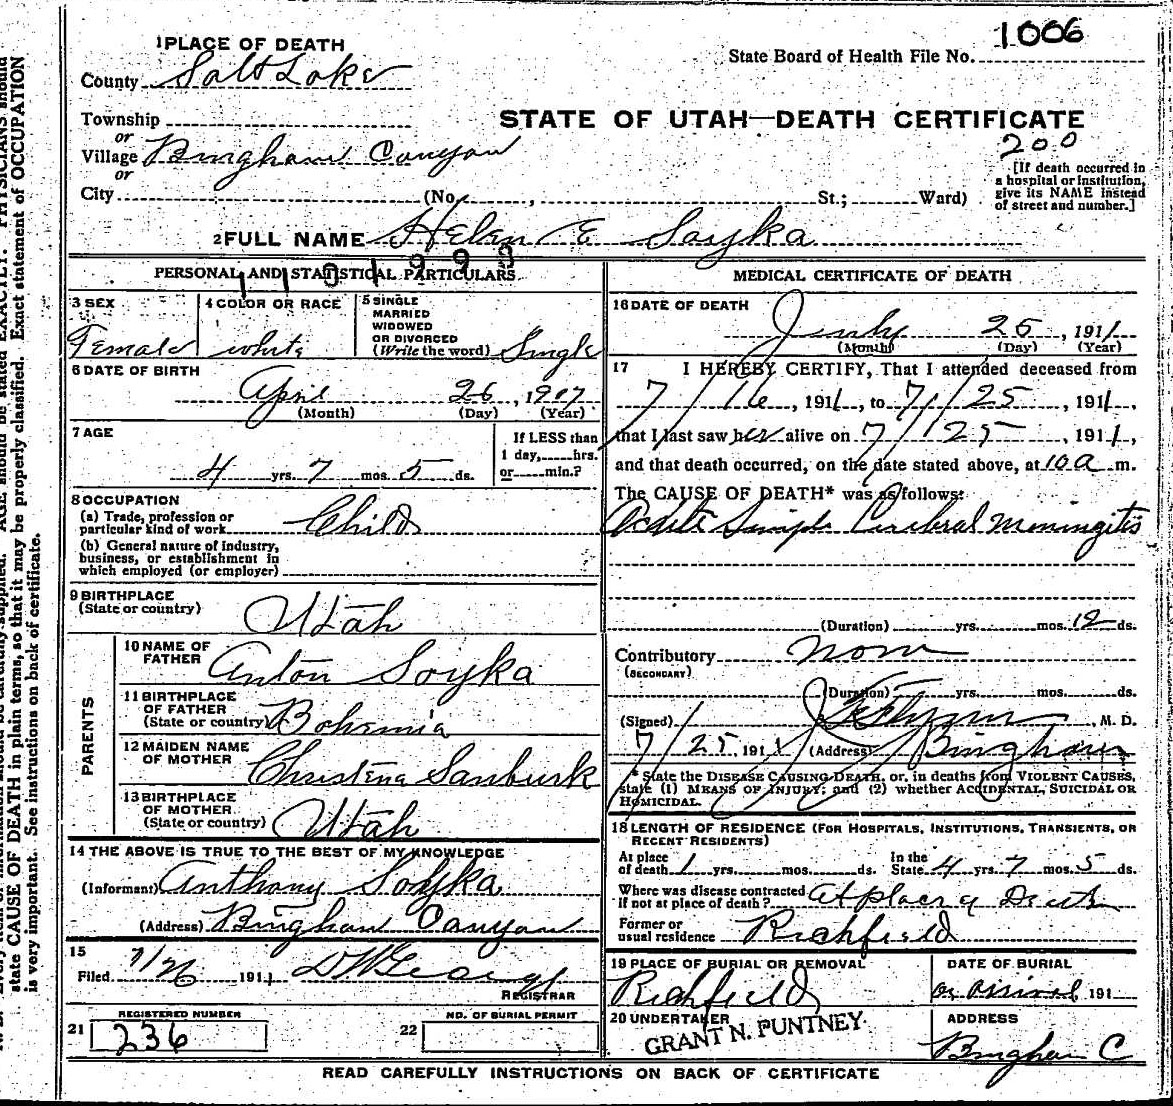 1 PLACE OF DEATH
County Salt Lake
State Board of Health File No. 1006
STATE OF UTAH—DEATH CERTIFICATE
200
Township
or
Village Bingham Canyon
or
City (No. , St.; Ward)
[If death occurred in
a hospital or institution,
give its NAME instead
of street and number.]
2 FULL NAME Helen E Soyka
PERSONAL AND STATISTICAL PARTICULARS
3 SEX
Female
4 COLOR OR RACE
white
5 SINGLE
MARRIED
WIDOWED
OR DIVORCED
(Write the word) Single
6 DATE OF BIRTH
April 26, 1907
(Month) (Day) (Year)
7 AGE
4 yrs. 7 mos. 5 ds.
If LESS than
1 day, hrs.
or min.?
8 OCCUPATION
(a) Trade, profession or
particular kind of work Child
(b) General nature of industry,
business, or establishment in
which employed (or employer)
9 BIRTHPLACE
(State or country) Utah
PARENTS
10 NAME OF
FATHER Anton Soyka
11 BIRTHPLACE
OF FATHER
(State or country) Bohemia
12 MAIDEN NAME
OF MOTHER Christena
13 BIRTHPLACE
OF MOTHER
(State or country) Utah
14 THE ABOVE IS TRUE TO THE BEST OF MY KNOWLEDGE
(Informant) Anthony Soyka
(Address) Bingham Canyon
15
Filed 7/26 1911
REGISTRAR
REGISTERED NUMBER
21 236
NO. OF BURIAL PERMIT
22
MEDICAL CERTIFICATE OF DEATH
16 DATE OF DEATH
July 25, 1911
(Month) (Day) (Year)
17 I HEREBY CERTIFY, That I attended deceased from
7/16, 1911, to 7/25, 1911,
that I last saw her alive on 7/25, 1911,
and that death occurred, on the date stated above, at 10 a m.
The CAUSE OF DEATH* was as follows:
Acute Simple Cerebral Meningitis
(Duration) yrs. mos. 12 ds.
Contributory None
(SECONDARY)
(Duration) yrs. mos. ds.
(Signed) , M. D.
7/25 1911 (Address) Bingham
* State the DISEASE CAUSING DEATH, or, in deaths from VIOLENT CAUSES,
state (1) MEANS OF INJURY; and (2) whether ACCIDENTAL, SUICIDAL OR
HOMICIDAL.
18 LENGTH OF RESIDENCE (FOR HOSPITALS, INSTITUTIONS, TRANSIENTS, OR
RECENT RESIDENTS)
At place
of death 1 yrs. mos. ds.
In the
State 4 yrs. 7 mos. 5 ds.
Where was disease contracted
if not at place of death? At place of Death
Former or
usual residence Richfield
19 PLACE OF BURIAL OR REMOVAL
Richfield
DATE OF BURIAL
or arrival 191
20 UNDERTAKER
GRANT N. PUNTNEY
ADDRESS
Bingham C
READ CAREFULLY INSTRUCTIONS ON BACK OF CERTIFICATE
state CAUSE OF DEATH in plain terms, so that it may be properly classified. Exact statement of OCCUPATION
is very important. See instructions on back of certificate.